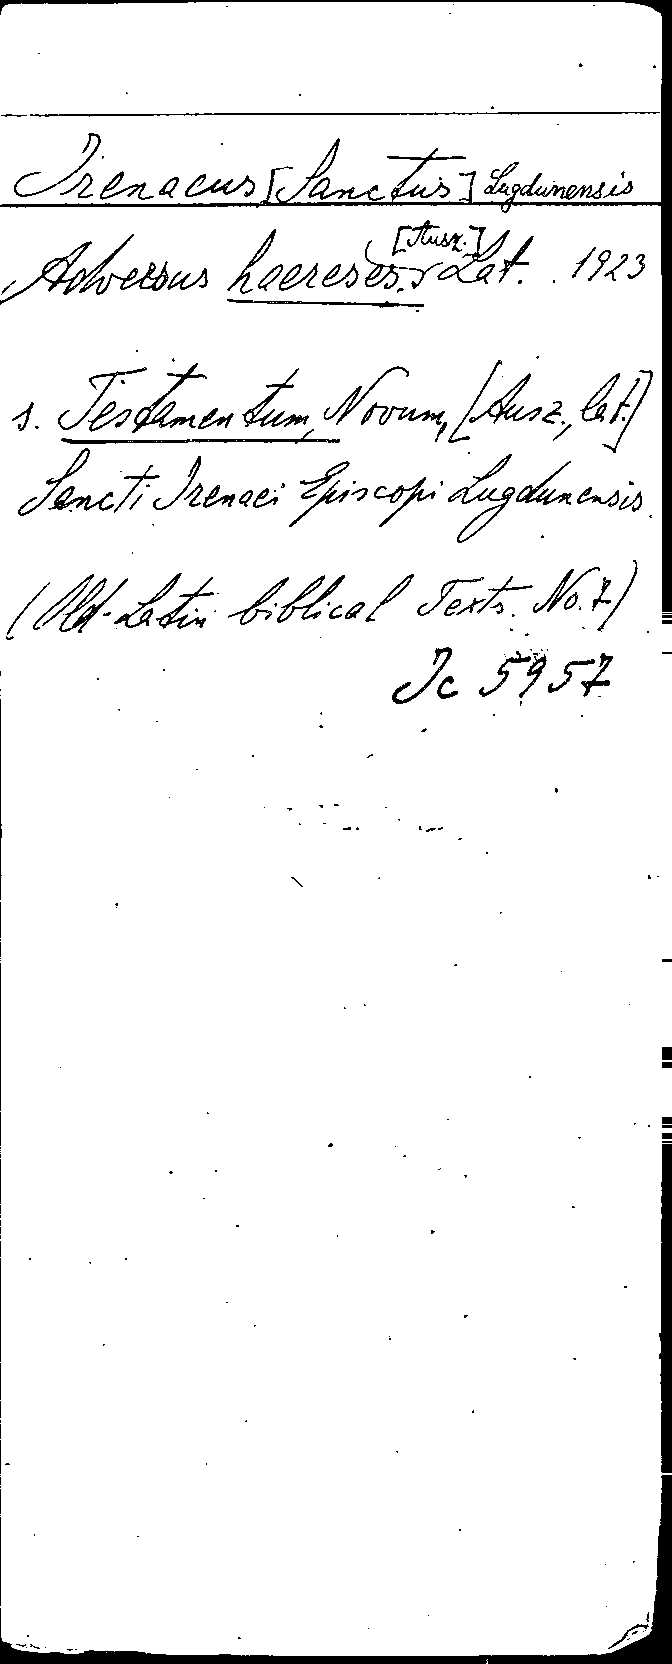 Irenaeus [Sanctus] Lugdunensis
Adversus haereses. [Ausz.] Lat. 1923
s. Testamentum, Novum, [Ausz., lat.]
Sancti Irenaei Episcopi Lugdunensis
(Old-Latin biblical Texts. No. 7)
Ic 5957